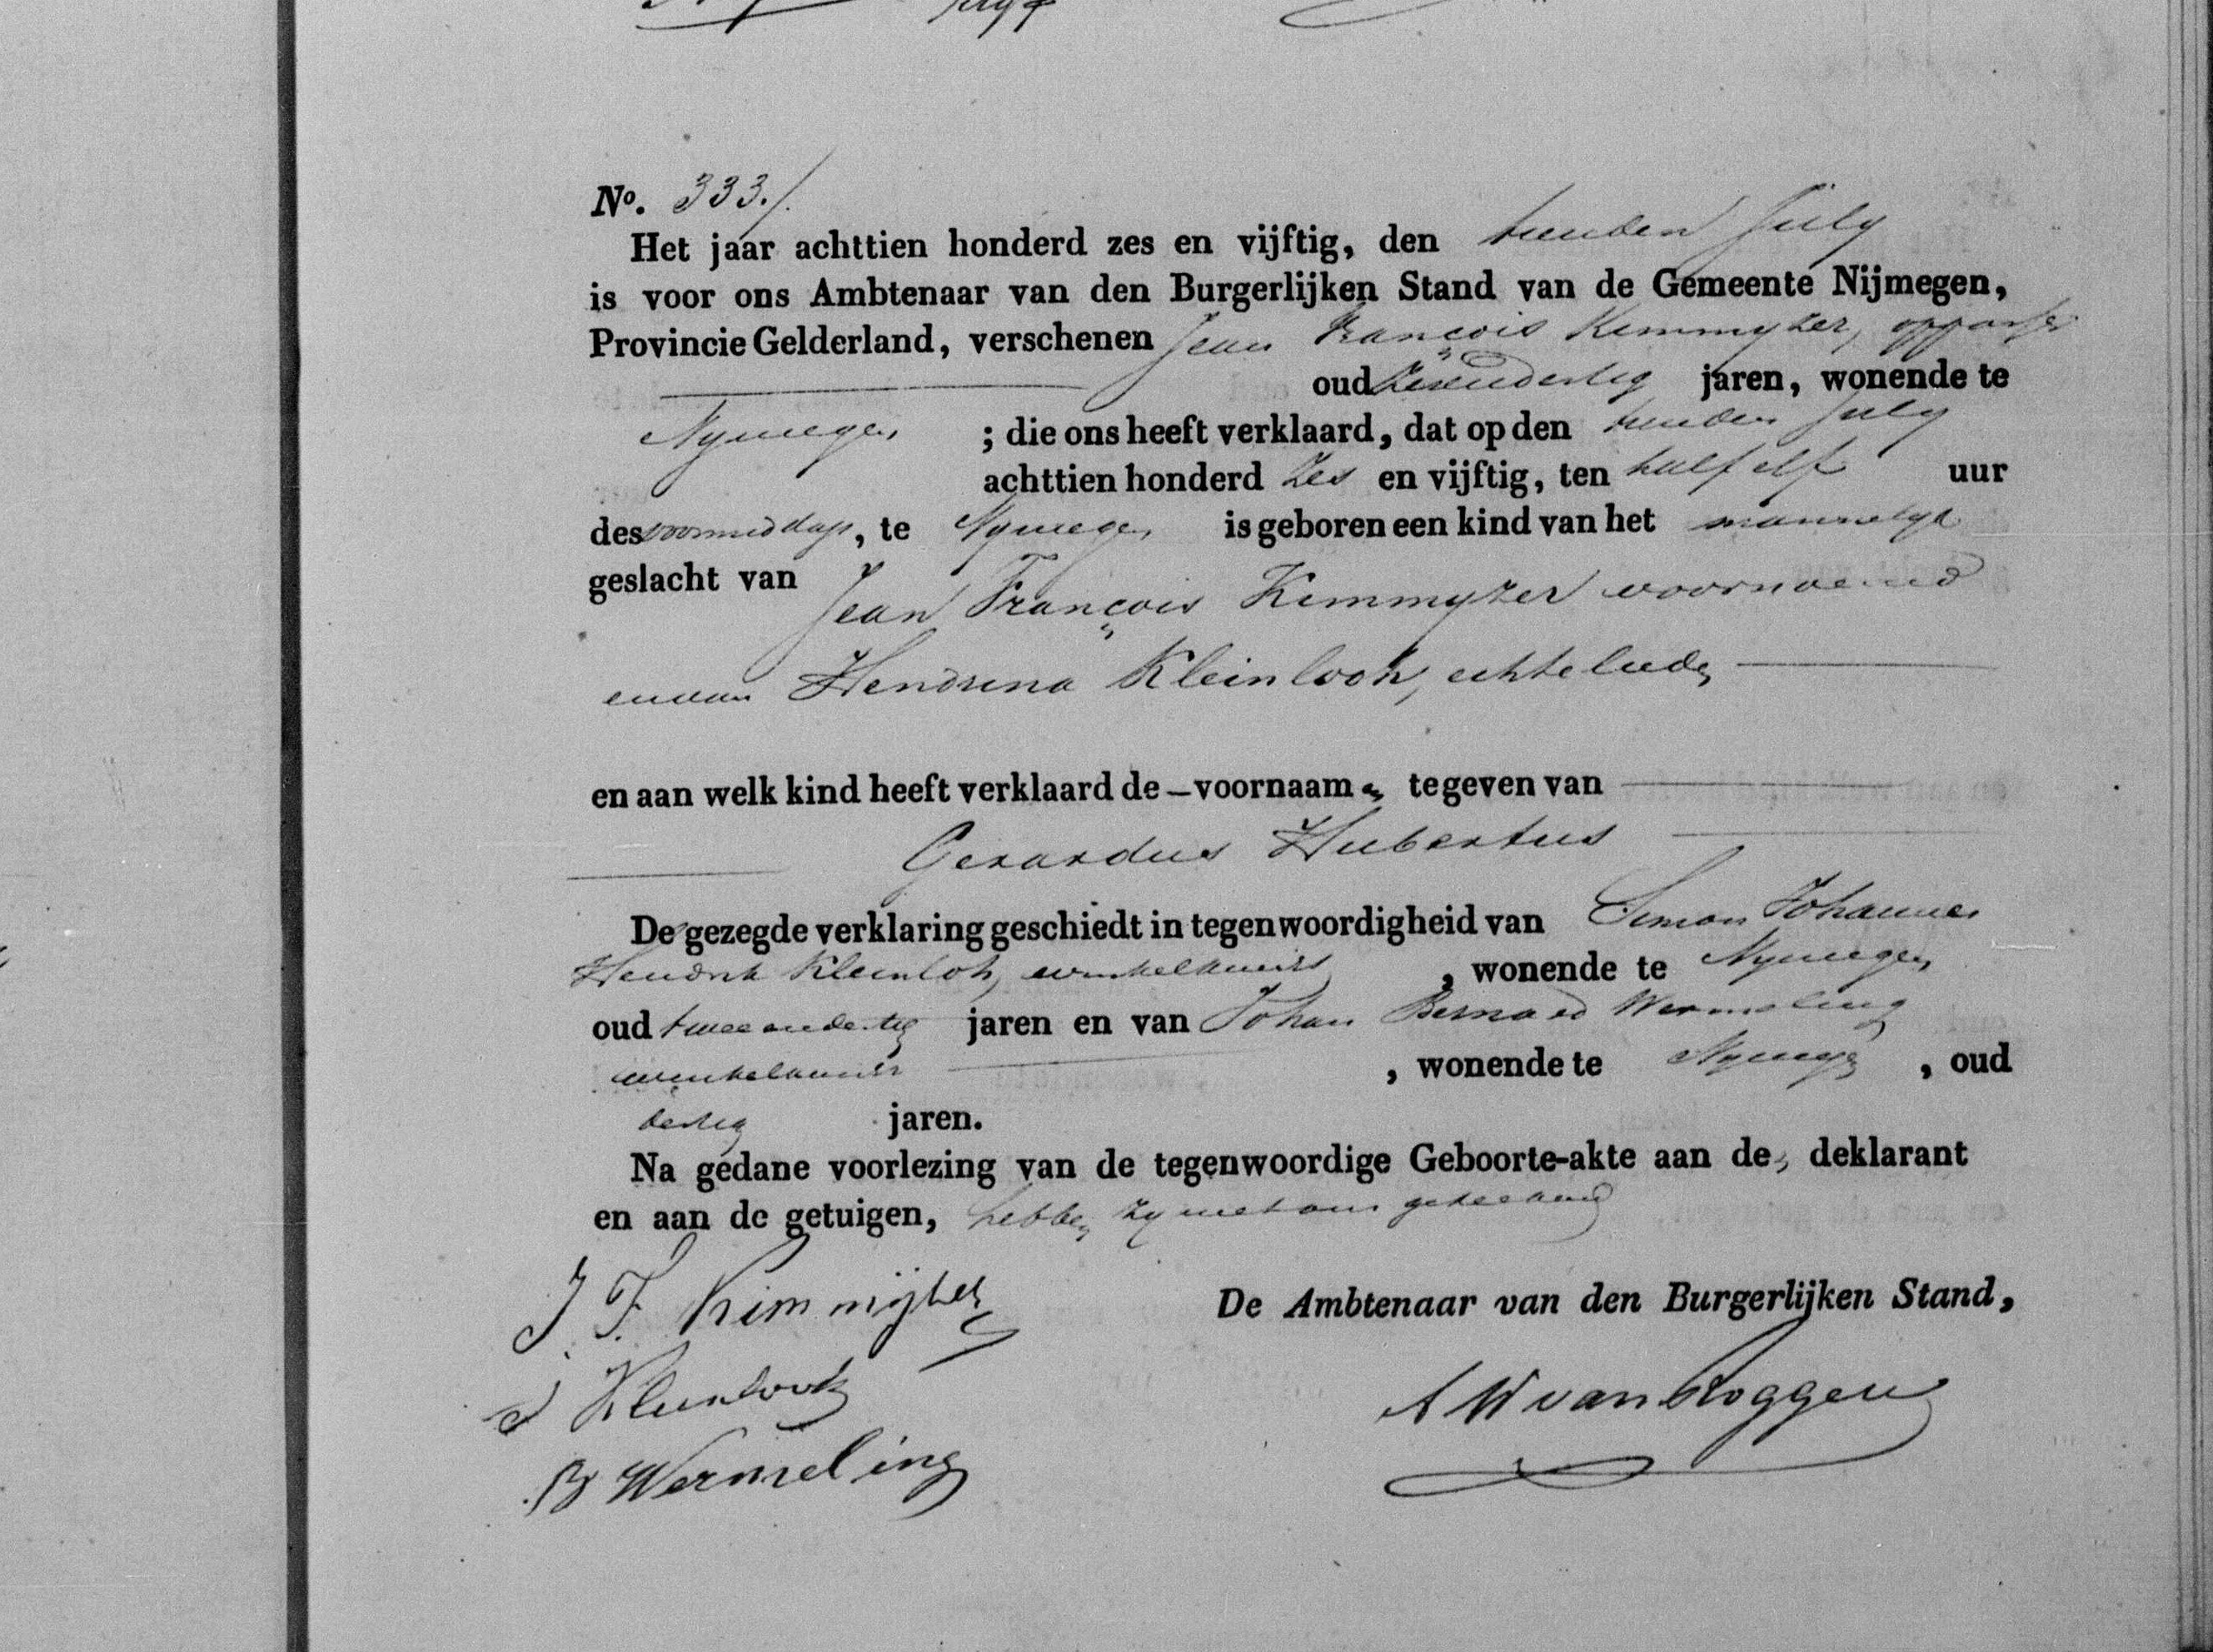 No. 333./.
Het jaar achttien honderd zes en vijftig, den tienden July
is voor ons Ambtenaar van den Burgerlijken Stand van de Gemeente Nijmegen,
Provincie Gelderland, verschenen Jean François Kemmyzer, oppasser
oud zesendertig jaren, wonende te
Nymegen ; die ons heeft verklaard, dat op den tienden July
achttien honderd zes en vijftig, ten half elf uur
des voormiddags, te Nymegen is geboren een kind van het mannelyk
geslacht van Jean François Kemmyzer voornoemd
en van Hendrina Kleinlook, echtelieden
en aan welk kind heeft verklaard de – voornaamen te geven van
Gerardus Hubertus
De gezegde verklaring geschiedt in tegenwoordigheid van Simon Johannes
Hendrik Kleinloh, winkelknecht, wonende te Nymegen
oud twee endertig jaren en van Johan Bernard Wermeling
winkelknecht , wonende te Nymegen , oud
dertig jaren.
Na gedane voorlezing van de tegenwoordige Geboorte-akte aan den deklarant
en aan de getuigen, hebben zy met ons geteekend
J F. Kimmijzer
De Ambtenaar van den Burgerlijken Stand,
Kleinlook
A W van Roggen
B Wermeling